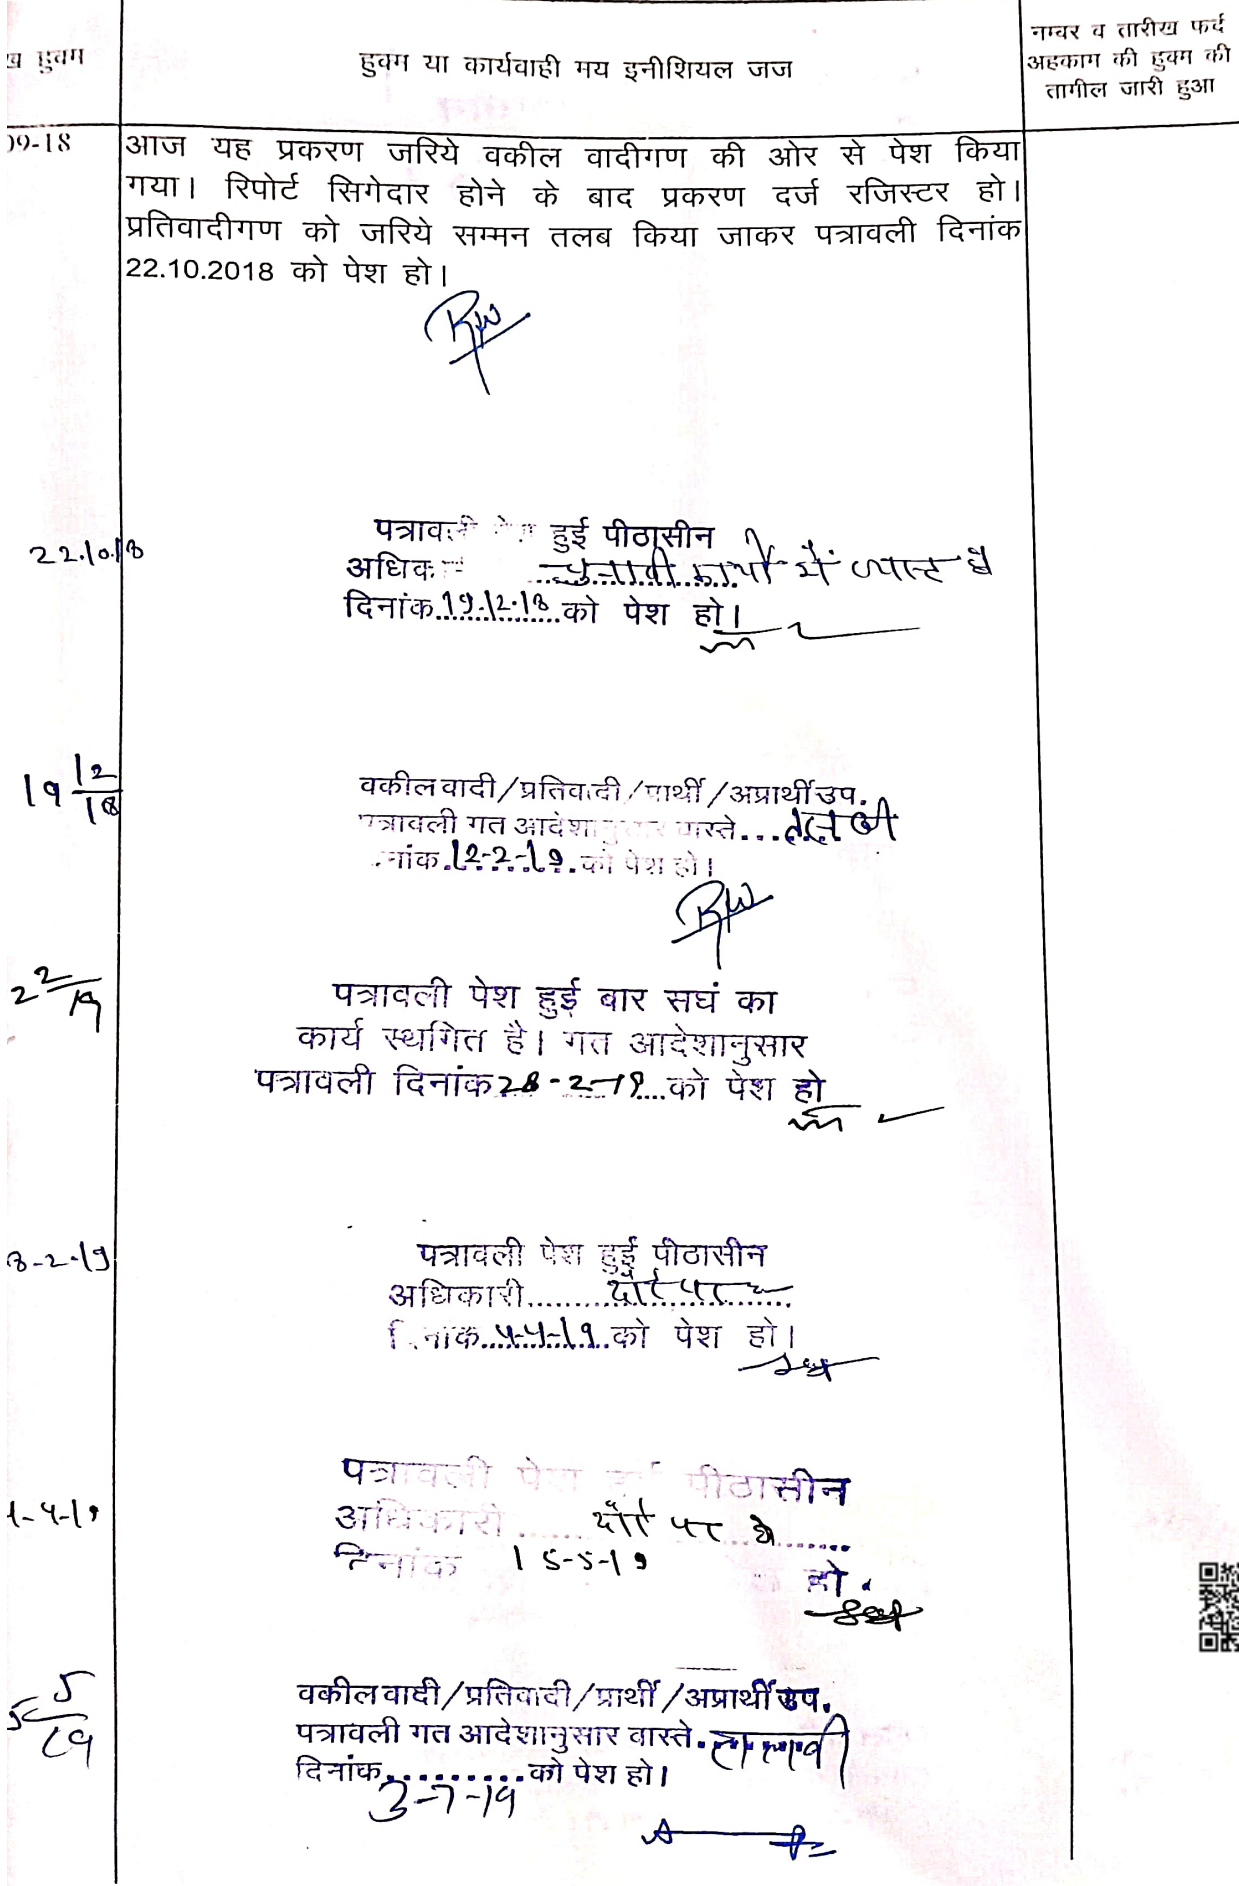 ख हुक्म
हुक्म या कार्यवाही मय इनीशियल जज
नम्बर व तारीख फर्द
अहकाम की हुक्म की
तामील जारी हुआ
09-18
आज यह प्रकरण जरिये वकील वादीगण की ओर से पेश किया
गया। रिपोर्ट सिगेदार होने के बाद प्रकरण दर्ज रजिस्टर हो।
प्रतिवादीगण को जरिये सम्मन तलब किया जाकर पत्रावली दिनांक
22.10.2018 को पेश हो।
22.10.18
पत्रावली पेश हुई पीठासीन
अधिक चुनावी कार्यो में व्यस्त है
दिनांक 19.12.18 को पेश हो।
19 12/18
वकील वादी/प्रतिवादी/प्रार्थी/अप्रार्थी उप.
पत्रावली गत आदेशानुसार वास्ते...तलबी
नांक.12-2-19.को पेश हो।
2 2/19
पत्रावली पेश हुई बार सघं का
कार्य स्थगित है। गत आदेशानुसार
पत्रावली दिनांक 28-2-19 को पेश हो
8-2-19
पत्रावली पेश हुई पीठासीन
अधिकारी..... दौरे पर
दिनांक 4-4-19 को पेश हो।
4-4-19
पत्रावली पेश हुई पीठासीन
अधिकारी ..... दौरे पर है
दिनांक 15-5-19 हो.
5 5/19
वकील वादी/प्रतिवादी/प्रार्थी/अप्रार्थी उप.
पत्रावली गत आदेशानुसार वास्ते. तलबी
दिनांक..........को पेश हो।
3-7-19